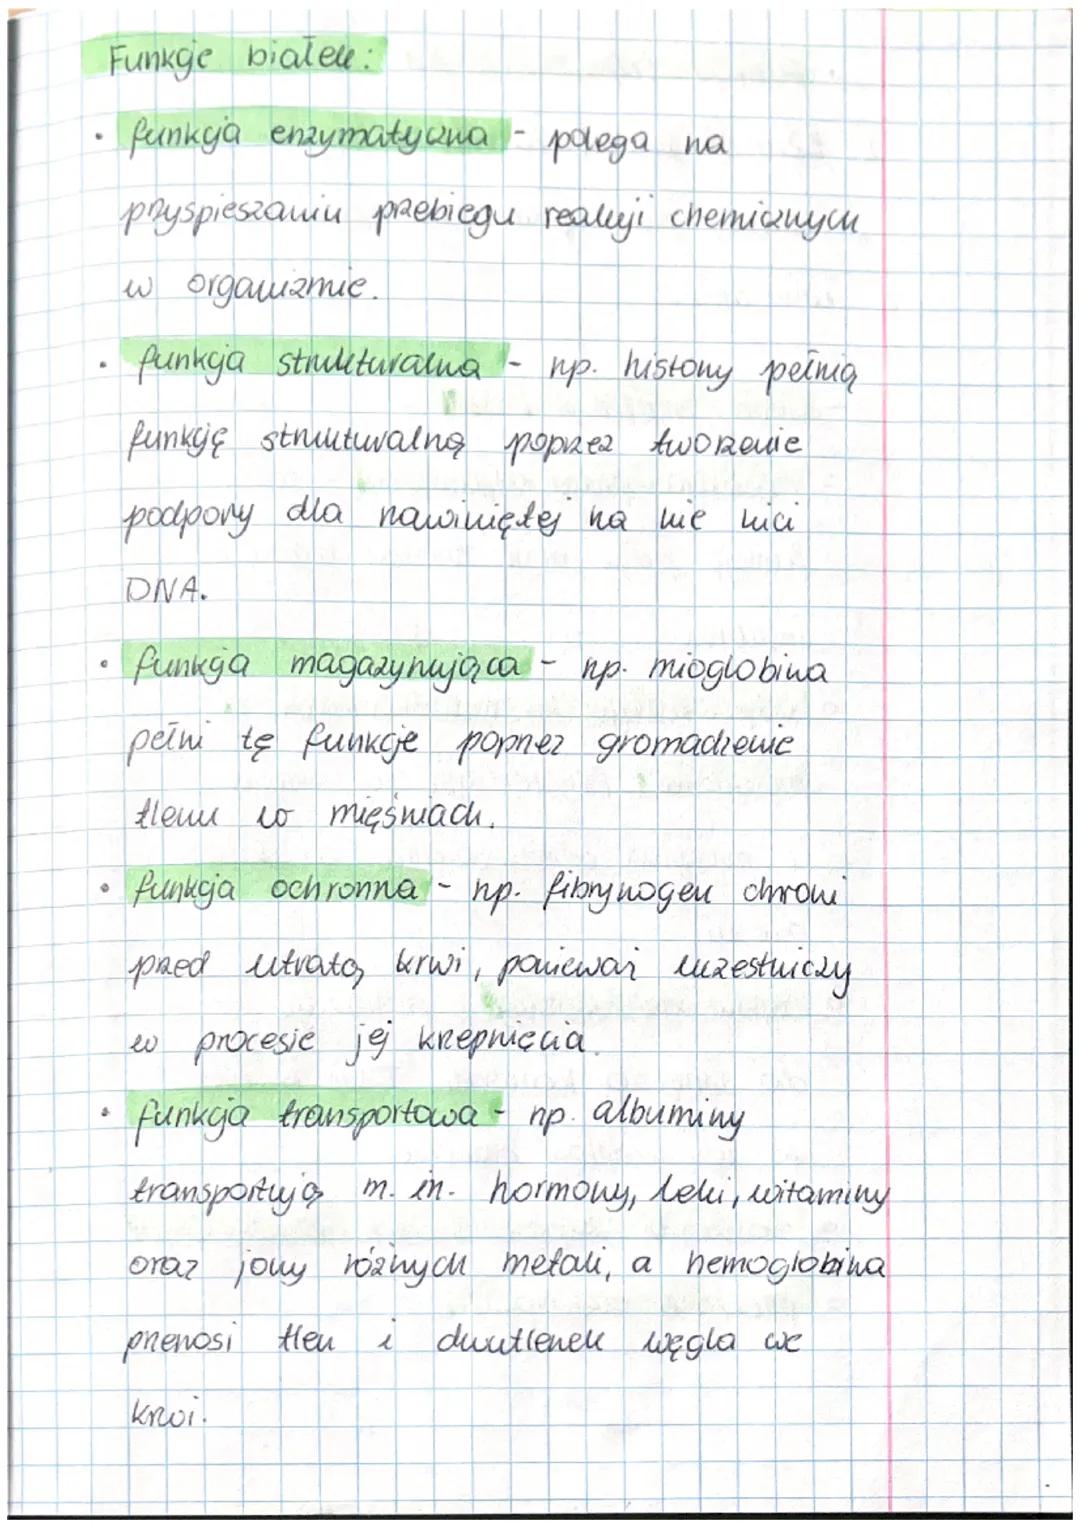 Funkcje białek:
• funkcja enzymatyczna - polega na
przyspieszaniu przebiegu reakcji chemicznych
w organizmie.
• funkcja strukturalna - np. histony pełnią
funkcję strukturalną poprzez tworzenie
podpory dla nawiniętej na nie nici
DNA.
• funkcja magazynująca - np. mioglobina
pełni tę funkcje poprzez gromadzenie
tlenu w mięśniach.
• funkcja ochronna - np. fibrynogen chroni
przed utratą krwi, ponieważ uczestniczy
w procesie jej krzepnięcia.
• funkcja transportowa - np. albuminy
transportują m. in. hormony, leki, witaminy
oraz jony różnych metali, a hemoglobina
przenosi tlen i dwutlenek węgla we
krwi.